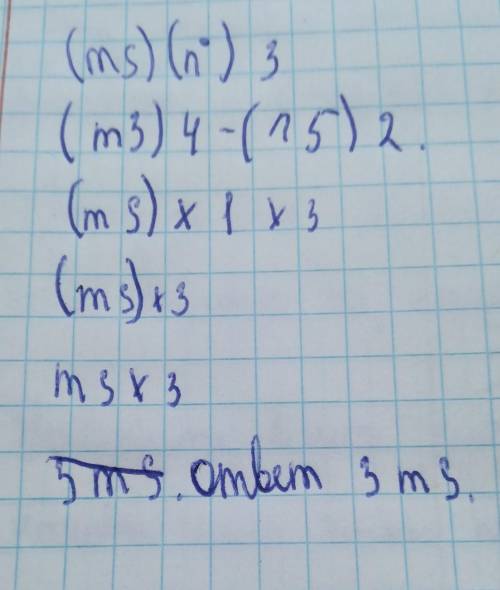 (m5)(n°) 3
(m3) 4 - (n5) 2.
(m5) x 1 x 3
(m5) x 3
m5 x 3
3m5. ответ 3m5.